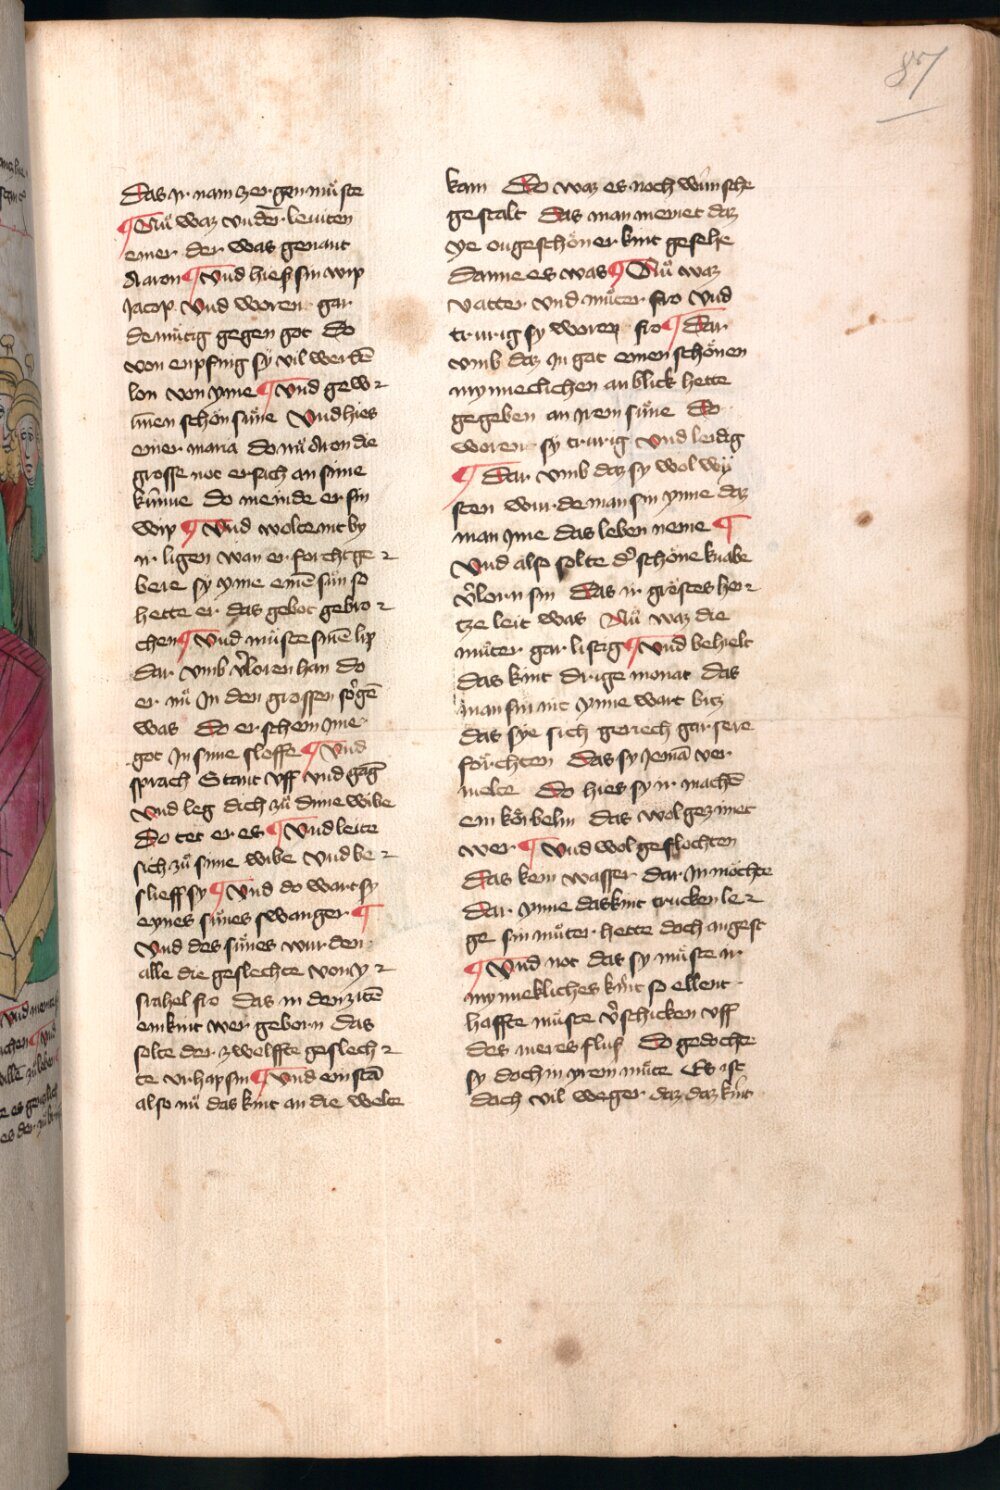 87
Das ir nam zergen müste
¶ Nů waz vnder leuiten
einer der was genant
Aaron ¶ Vnd hies sin wip
Jacop Vnd woren gar
demütig gegen got Do
von enpfing sÿ vil werdē
lon von yme ¶ Vnd gew
nnen schön süne Vnd hies
einer maria do nů Aron die
grosse not ersach an sime
kunne Do meinde er sin
wip ¶ Vnd wolte nit by
ir ligen wan er forchtge
bere sy yme einē sůn so
hette er das gebot gebro
chen ¶ Vnd müste sinē lip
dar vmb v̾loren han do
er nů Jn den grossen sorgē
was Do erschein Jme
got Jn sime sloffe ¶ Vnd
sprach Stant vff vnd gāg
vnd leg dich zů dime wibe
Do tet er es ¶ Vnd leite
sich zů sime wibe Vnd be
slieff sy ¶ Vnd do wart sy
eynes sůnes swanger ¶
Vnd des sůnes wurden
alle die geslechte von y
srahel fro das in den zitē
ein kint wer geborn das
solte der zwelffte geslech
te vrhap sin ¶ Vnd
also nů das kint an die welte
kam Do waz es noch wunsche
gestalt Das man meinet daz
ye ougeschöner kint gesehe
danne es was ¶ Nů waz
vatter vnd můter fro Vnd
trurig sy woren fro ¶ Dar
vmb daz Jn got einen schönen
mynneclichen anblick hette
gegeben an Jrem süne Do
woren sy trurig vnd leidig
¶ Dar vmb daz sy wol wÿ
sten wurde man sin ynne daz
man Jme das leben neme ¶
Vnd also solte d̾ schöne knabe
v̾lorn sin Das ir gröstes her
tze leit was Nů waz die
můter gar listig ¶ Vnd behielt
das kint drige monat das
man sin nit ynne wart bitz
das sye sich gar sere
förchten Das sy Jemā ver
melte Do hies sy ir machē
ein körbelin das wol gezimet
wer ¶ Vnd wol geflochten
Das kein wasser dar Jn möchte
Dar ynne das kint trucken le
ge sin můter hette doch angest
¶ Vnd not das sy můste ir
mynnekliches kint so ellent
haffte můste v̾schicken vff
des meres flus Do gedochte
sy doch in yrem můte Es ist
doch vil weger daz daz kint